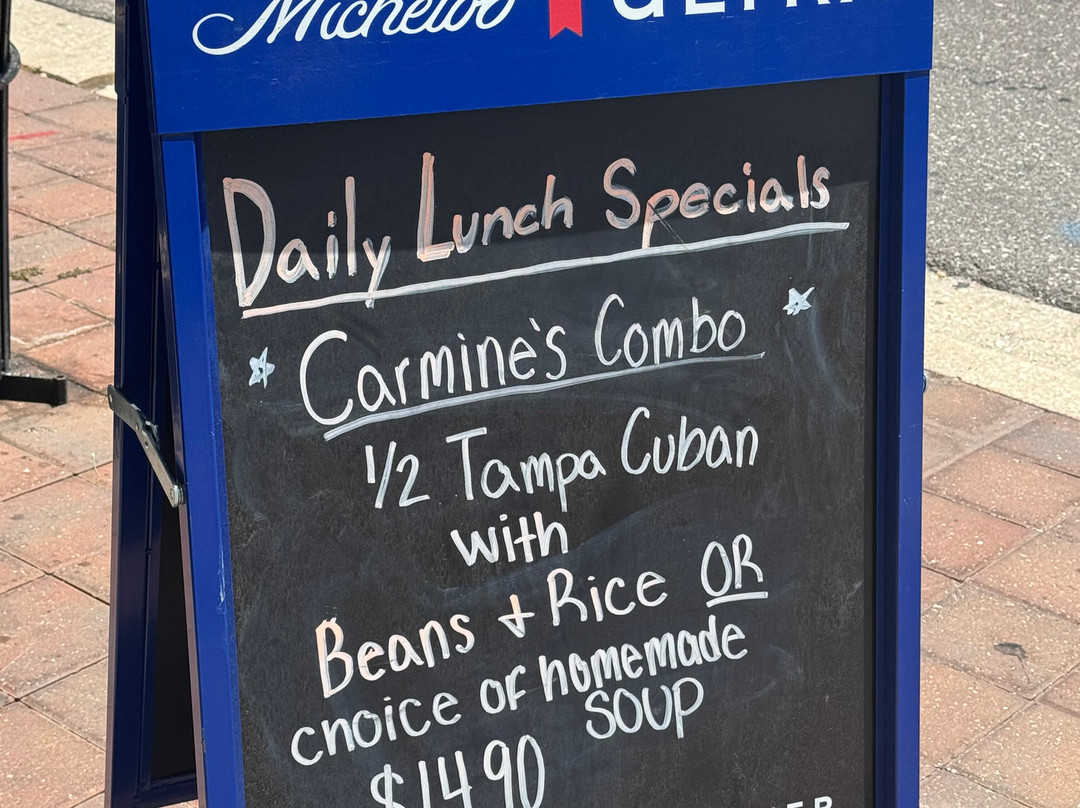 Michelob
Daily Lunch Specials
Carmine's Combo
1/2 Tampa Cuban
with
Beans + Rice OR
choice of homemade
SOUP
$14.90